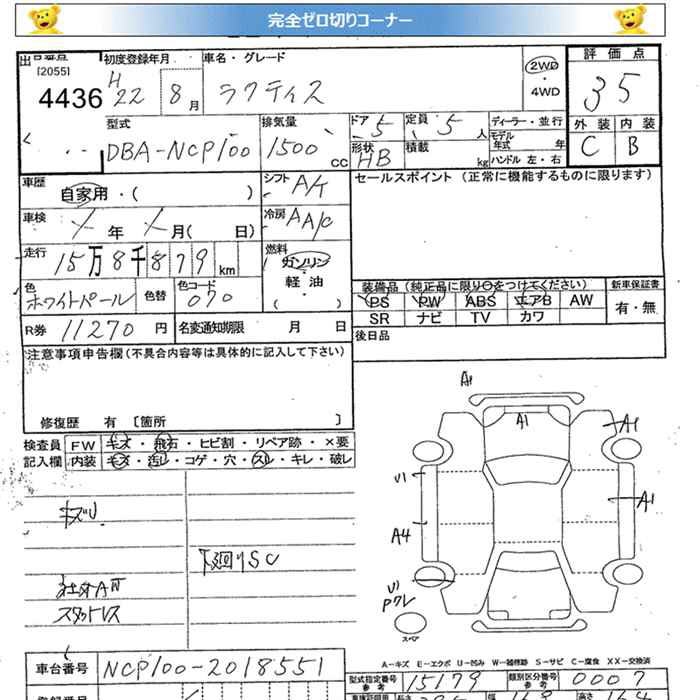 完全ゼロ切りコーナー
[2055]
4436
初度登録年月
H22 8月
車名・グレード
ラクティス
2WD
・
4WD
評価点
35
外装 内装
C B
型式
DBA-NCP100
排気量
1500 cc
ドア 5
定員 5 人
形状 HB
積載 kg
ディーラー・並行
モデル年式 年
ハンドル 左・右
車歴
自家用・( )
シフト A/T
車検 年 月( 日)
冷房 AA/C
走行
15万8千879km
燃料
ガソリン
・
軽油
( )
色
ホワイトパール
色替
色コード
070
R券 11270円
名変通知期限 月 日
セールスポイント (正常に機能するものに限ります)
装備品 (純正品に限り○をつけてください)
新車保証書
PS PW ABS エアB AW
SR ナビ TV カワ
有・無
後日品
注意事項申告欄(不具合内容等は具体的に記入して下さい)
修復歴 有 [箇所 ]
検査員
記入欄
FW キズ・飛石・ヒビ割・リペア跡・×要
内装 キズ・汚レ・コゲ・穴・スレ・キレ・破レ
キズU
下廻りSC
スタットレス
A1
A1
A1
U1
A1
A4
U1
Pワレ
スペア
A-キズ E-エクボ U-凹み W-補修跡 S-サビ C-腐食 XX-交換済
車台番号
NCP100-2018551
型式指定番号
参考
15179
類別区分番号
参考
0007